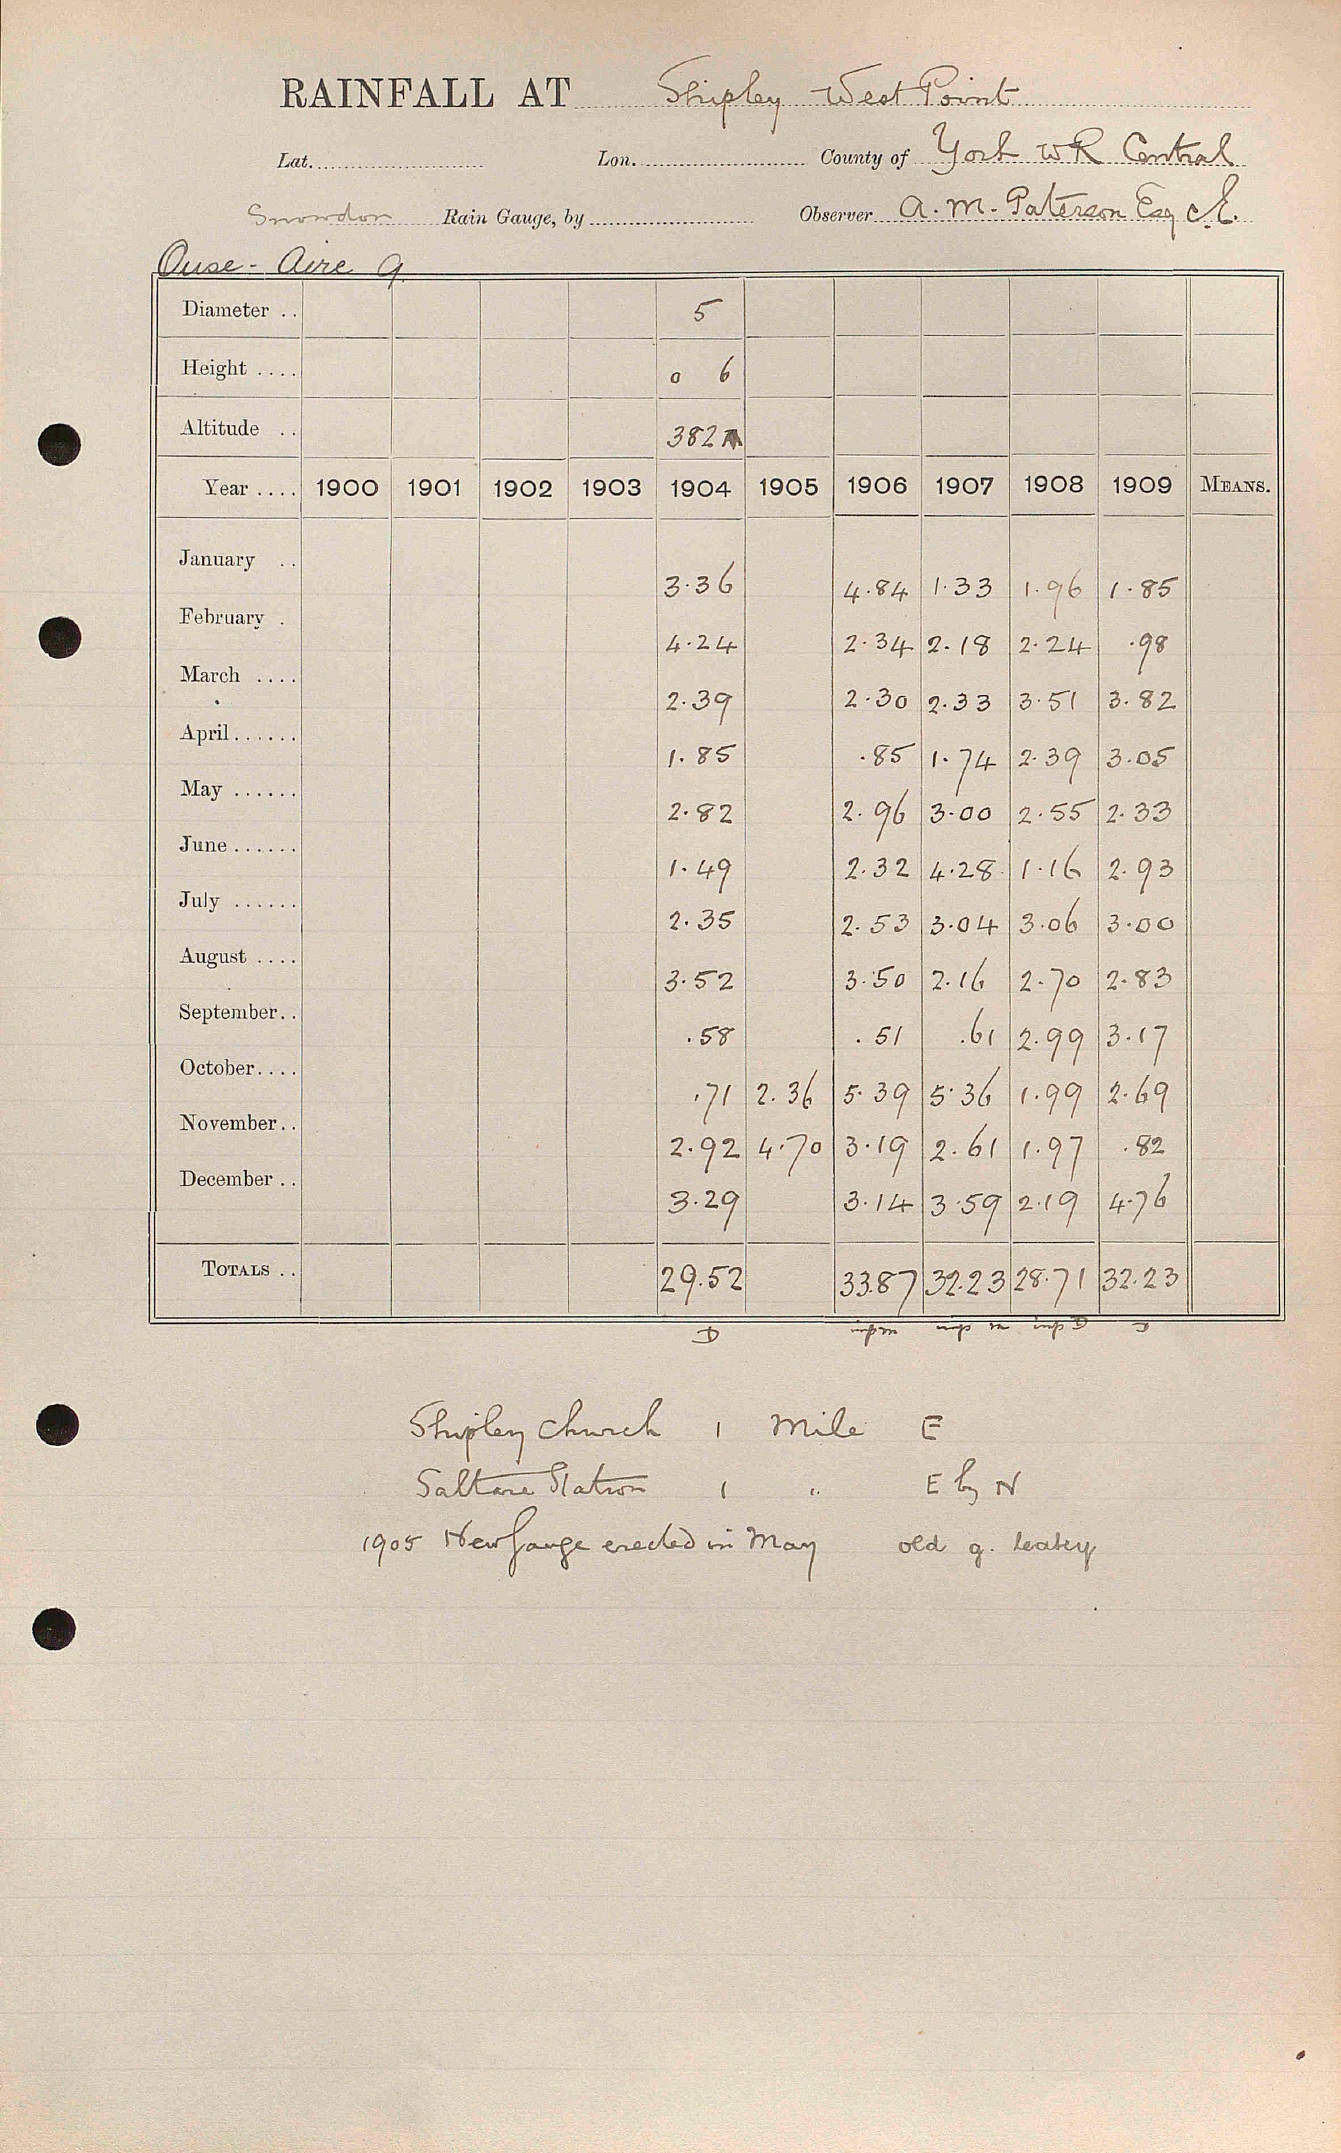 RAINFALL AT Shipley West Point
Lat. Lon. County of York WR Central
Snowdon Rain Gauge, by Observer A. M. Paterson Esq C.E.
Ouse - Aire 9
Diameter .. 5
Height .... 0 6
Altitude .. 382
Year .... 1900 1901 1902 1903 1904 1905 1906 1907 1908 1909 MEANS.
January .. 3.36 4.84 1.33 1.96 1.85
February . 4.24 2.34 2.18 2.24 .98
March .... 2.39 2.30 2.33 3.51 3.82
April...... 1.85 .85 1.74 2.39 3.05
May ...... 2.82 2.96 3.00 2.55 2.33
June ...... 1.49 2.32 4.28 1.16 2.93
July ...... 2.35 2.53 3.04 3.06 3.00
August .... 3.52 3.50 2.16 2.70 2.83
September.. .58 .51 .61 2.99 3.17
October.... .71 2.36 5.39 5.36 1.99 2.69
November.. 2.92 4.70 3.19 2.61 1.97 .82
December .. 3.29 3.14 3.59 2.19 4.76
TOTALS .. 29.52 33.87 32.23 28.71 32.23
Shipley Church 1 Mile E
Saltaire Station 1 " E by N
1905 New Gauge erected in May old g. leaky